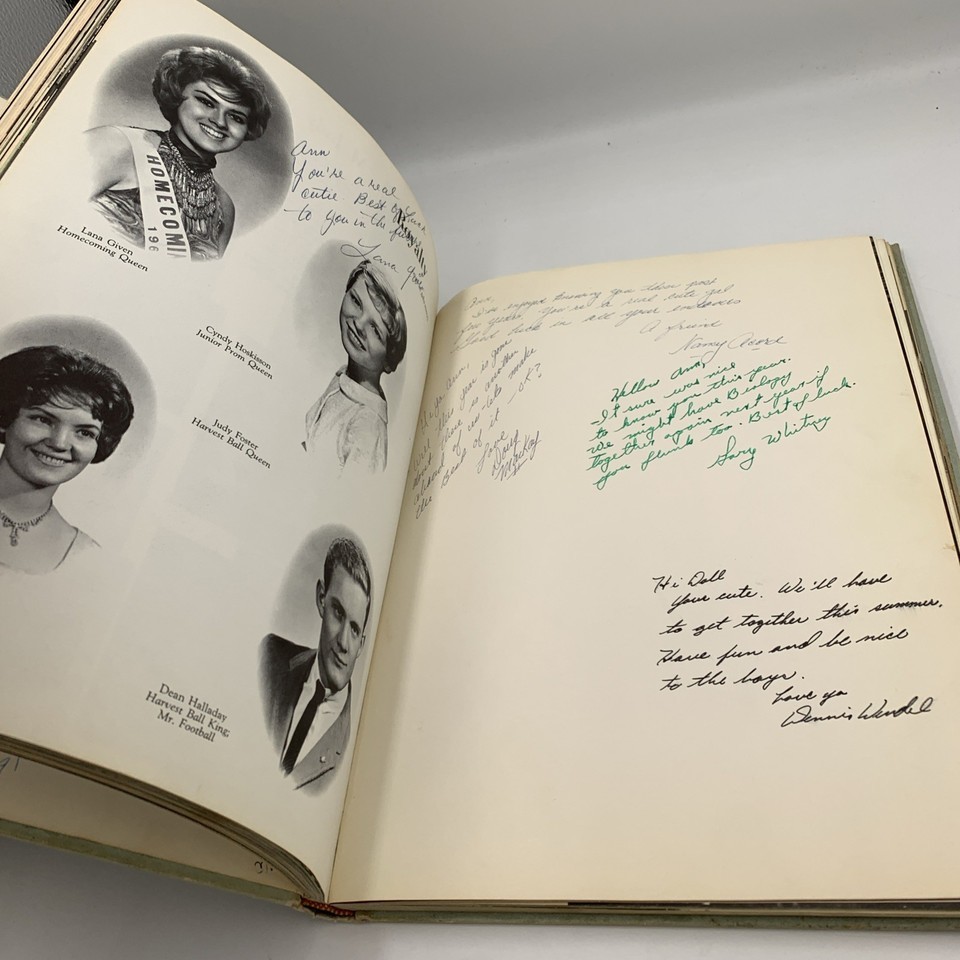 HOMECOMI
196
Lana Given
Homecoming Queen
Ann
You're a real
cutie Best of Luck
to you in the
Lana
Royalty
Cyndy Hoskisson
Junior Prom Queen
Judy Foster
Harvest Ball Queen
Dean Halladay
Harvest Ball King;
Mr. Football
Ann,
enjoyed knowing you these past
few years, you're a real cute gal
Good luck in all your endeavors
A friend
Nancy
Hi ya Ann,
Well this year is gone
about there is another
ahead of us - lets make
the Best of it OK?
Love
Doug
Hellow Ann,
It sure was nice
to know you this year.
We might have Biology
together again next year if
you flunk too. Best of luck.
Gary Whitney
Hi Doll
Your cute. We'll have
to get together this summer.
Have fun and be nice
to the boys.
Love ya
Dennis Wardel